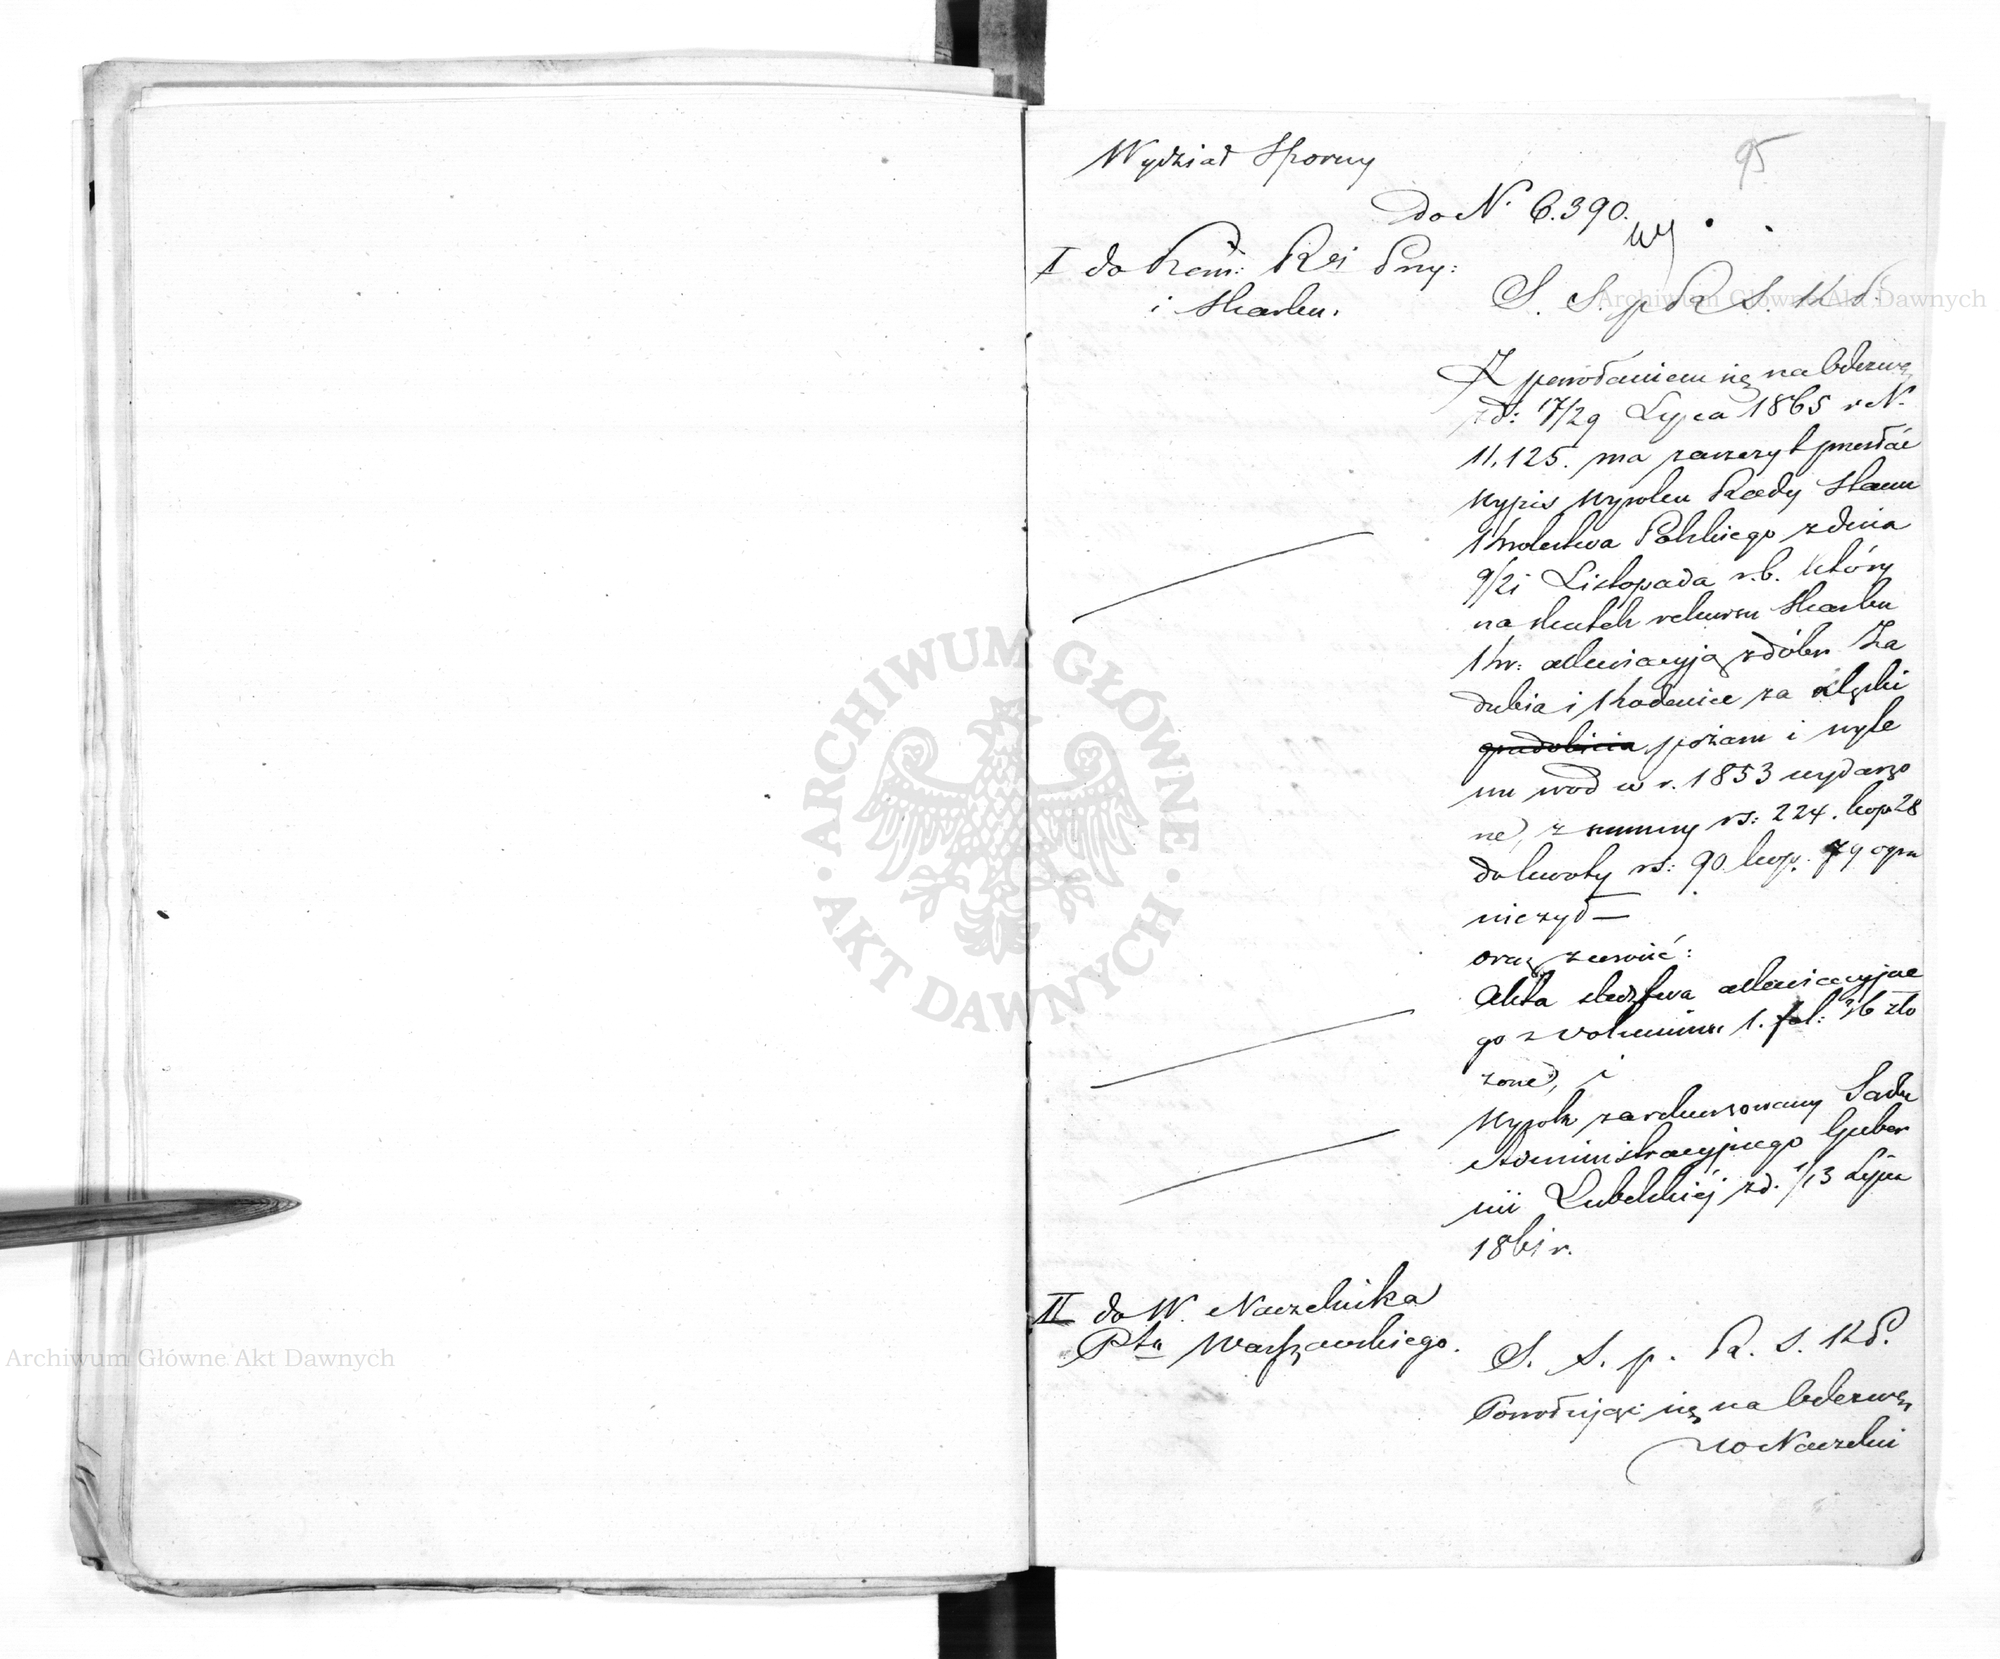 95
Wydział Sporny
do N. 6.390.
I do Kom: Rei Pny:
i Skarbu.
S. S. p R S. K P.
Z powołaniem się na Odezwę
z d: 17/29 Lipca 1865 r N.
11,125. ma zaszczyt przesłać
wypis wyroku Rady Stanu
Królestwa Polskiego z dnia
9/21 Listopada r. b. który
na skutek rekursu Skarbu
Kr: allewiacyją z dóbr Za
dubia i Kodenice za klęski
gradobicia pożaru i wyle
wu wód w r. 1853 wydarzo
ne, z summy rs: 224. kop 28
do kwoty rs: 90 kop. 79 ogra
niczył —
oraz zwrócić:
Akta śledztwa allewiacyjne
go z voluminu 1. fol: 36 zło
żone, i
wyrok zarekursowany Sądu
Administracyjnego Guber
nii Lubelskiéj z d. 1/13 Lipca
1861 r.
II do W. Naczelnika
Ptu Warszawskiego.
S. S. p. R. S. K P.
Powołując się na Odezwę
W Naczelni
Archiwum Główne Akt Dawnych
ARCHIWUM GŁÓWNE AKT DAWNYCH
Archiwum Główne Akt Dawnych